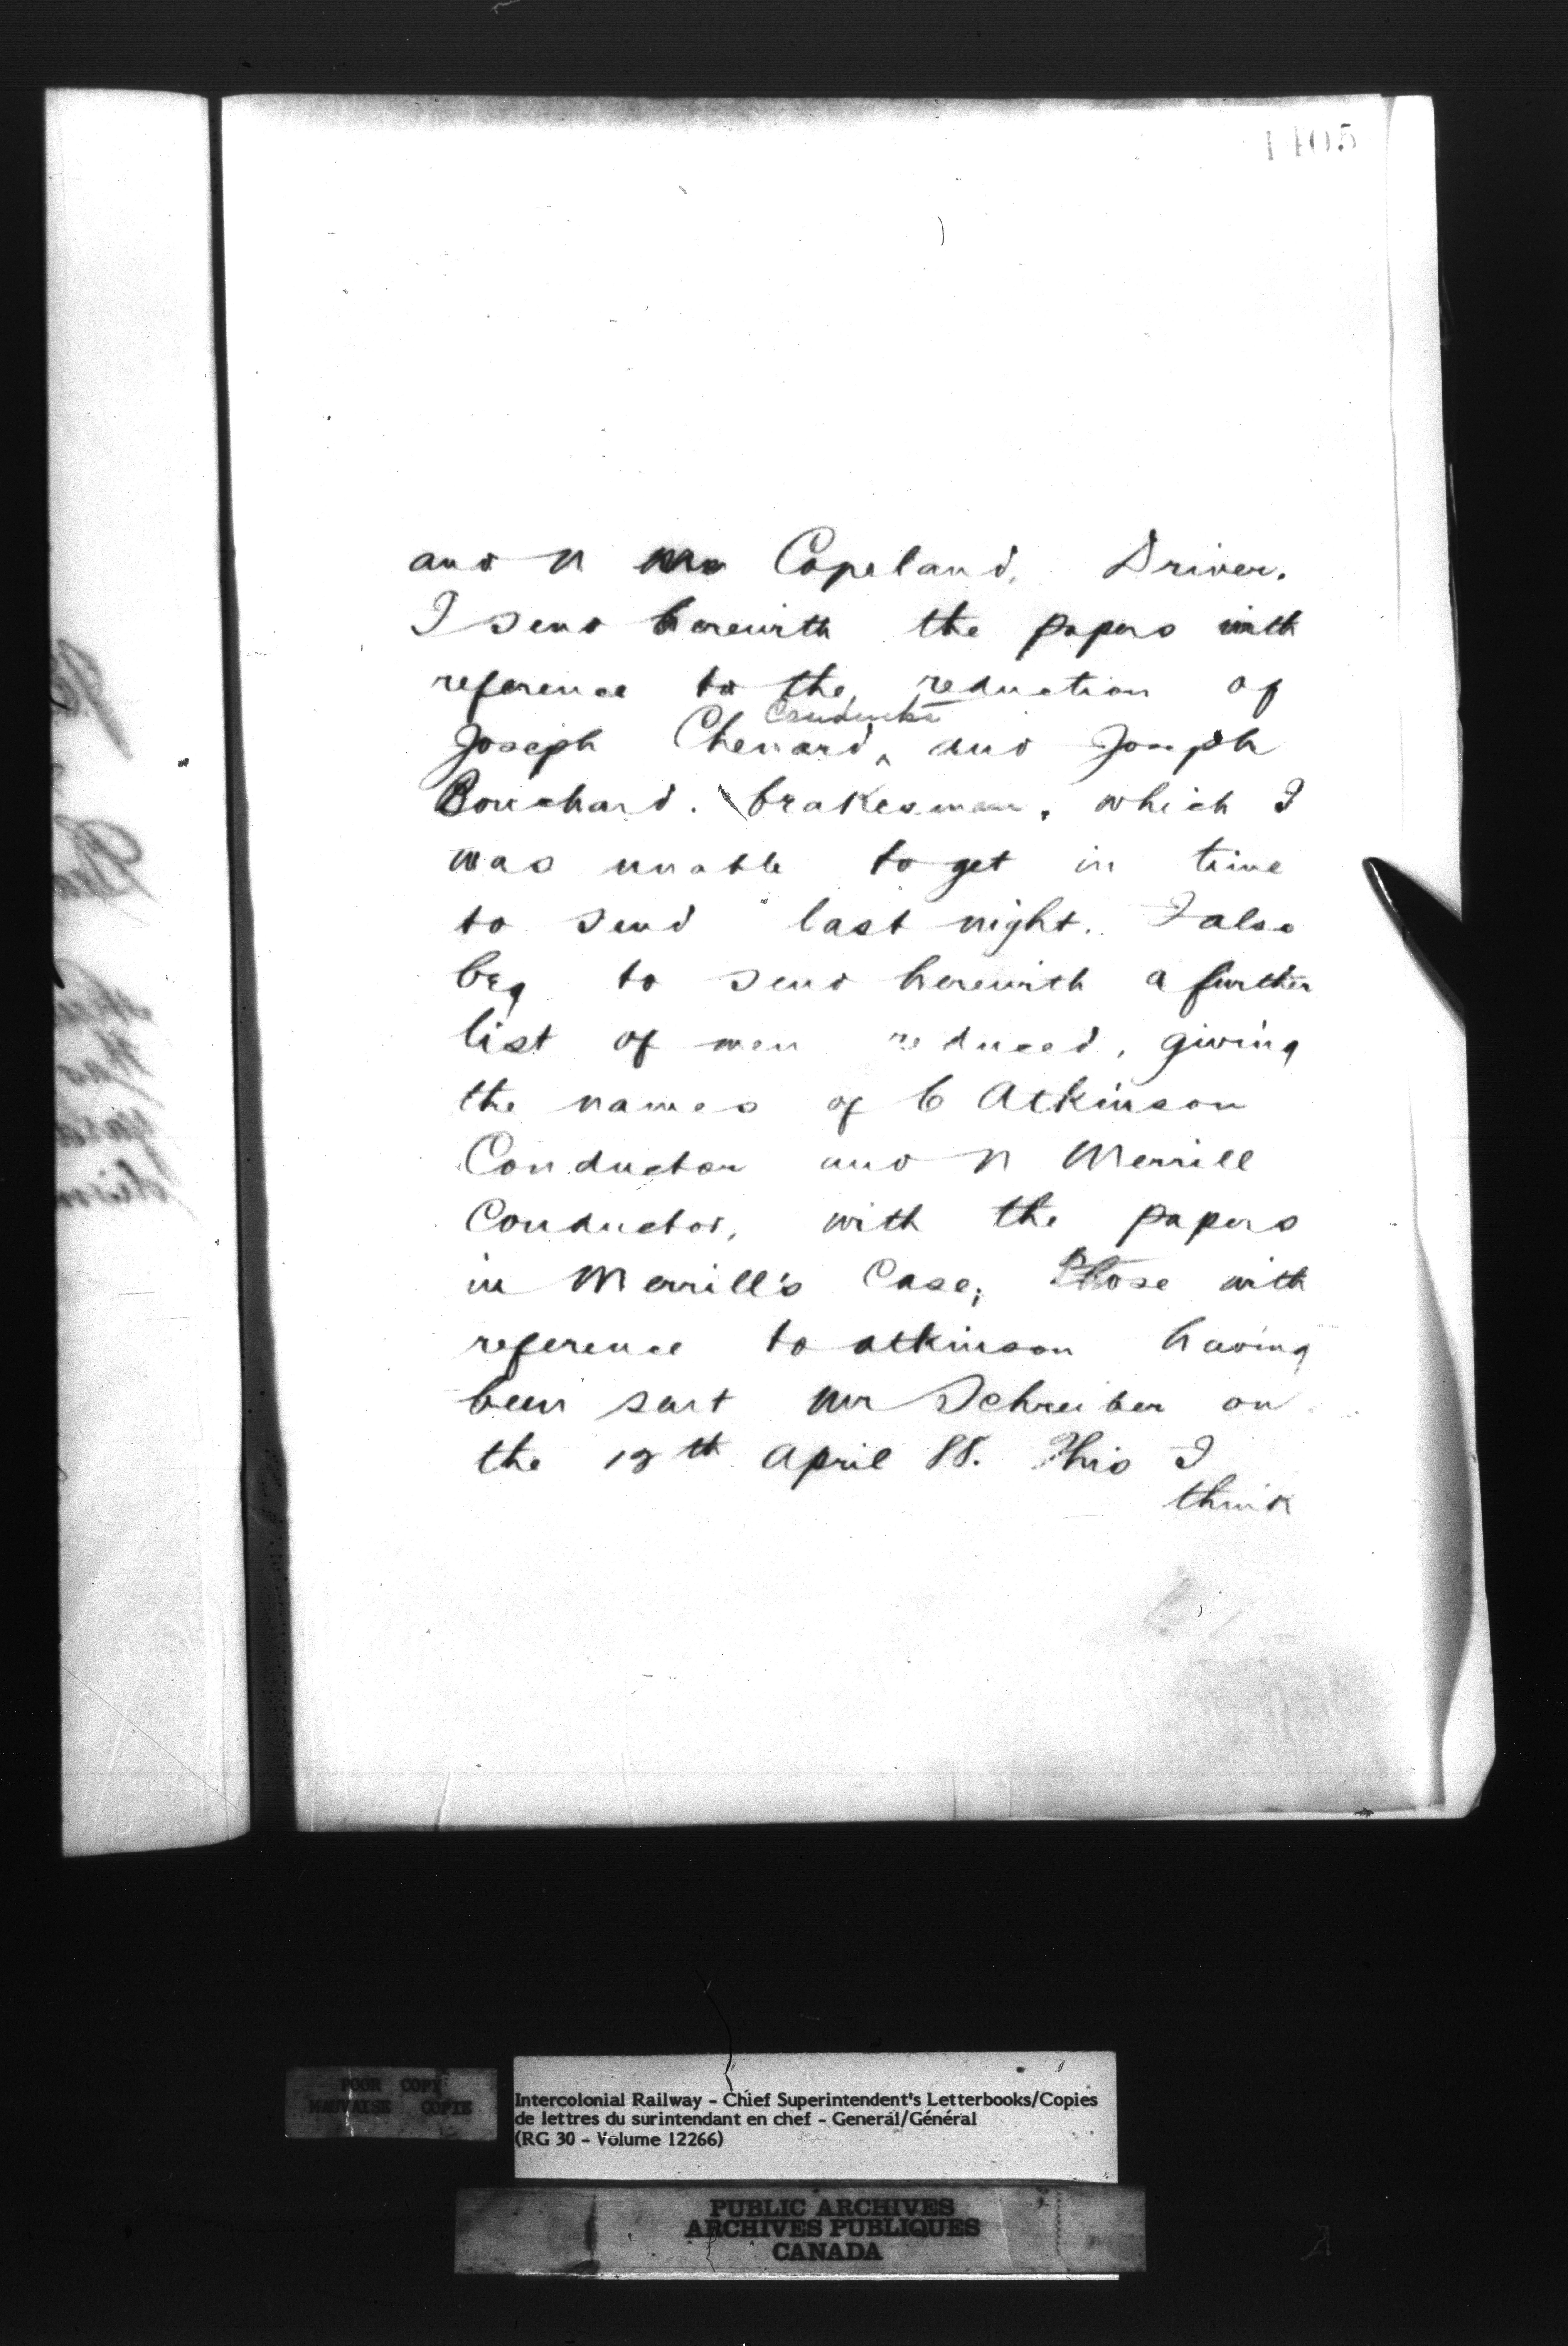 1405
and N Copeland, Driver.
I send herewith the papers with
reference to the reduction of
Conductor
Joseph Chenard, and Joseph
Bouchard. brakesman, which I
was unable to get in time
to send last night. I also
beg to send herewith a further
list of men reduced, giving
the names of C Atkinson
Conductor and N Merrill
Conductor, with the papers
in Merrill's Case; Those with
reference to atkinson having
been sent Mr Schreiber on
the th April 88. This I
think
POOR COPY
MAUVAISE COPIE
Intercolonial Railway - Chief Superintendent's Letterbooks/Copies
de lettres du surintendant en chef - General/Général
(RG 30 - Volume 12266)
PUBLIC ARCHIVES
ARCHIVES PUBLIQUES
CANADA